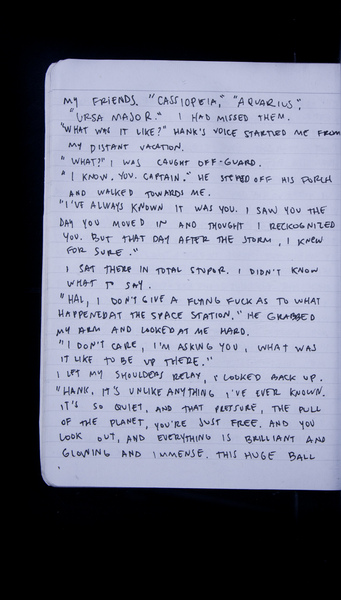 MY FRIENDS. "CASSIOPEIA," "AQUARIUS",
"URSA MAJOR." I HAD MISSED THEM.
"WHAT WAS IT LIKE?" HANK'S VOICE STARTLED ME FROM
MY DISTANT VACATION.
"WHAT?" I WAS CAUGHT OFF-GUARD.
"I KNOW. YOU. CAPTAIN." HE STEPPED OFF HIS PORCH
AND WALKED TOWARDS ME.
"I'VE ALWAYS KNOWN IT WAS YOU. I SAW YOU THE
DAY YOU MOVED IN AND THOUGHT I RECKOGNIZED
YOU. BUT THAT DAY AFTER THE STORM, I KNEW
FOR SURE."
I SAT THERE IN TOTAL STUPOR. I DIDN'T KNOW
WHAT TO SAY.
"HAL, I DON'T GIVE A FLYING FUCK AS TO WHAT
HAPPENED AT THE SPACE STATION." HE GRABBED
MY ARM AND LOOKED AT ME HARD.
"I DON'T CARE, I'M ASKING YOU, WHAT WAS
IT LIKE TO BE UP THERE."
I LET MY SHOULDERS RELAX, I LOOKED BACK UP.
"HANK, IT'S UNLIKE ANYTHING I'VE EVER KNOWN.
IT'S SO QUIET, AND THAT PRESSURE, THE PULL
OF THE PLANET, YOU'RE JUST FREE. AND YOU
LOOK OUT, AND EVERYTHING IS BRILLIANT AND
GLOWING AND IMMENSE. THIS HUGE BALL